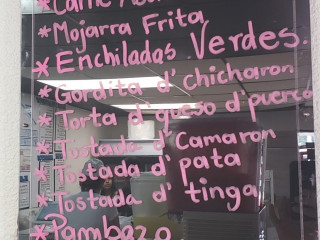 * Carne
* Mojarra Frita
* Enchiladas Verdes.
* Gordita d' chicharon
* Torta d' queso d' puerco
* Tostada d' Camaron
* Tostada d' pata
* Tostada d' tinga
* Pambazo